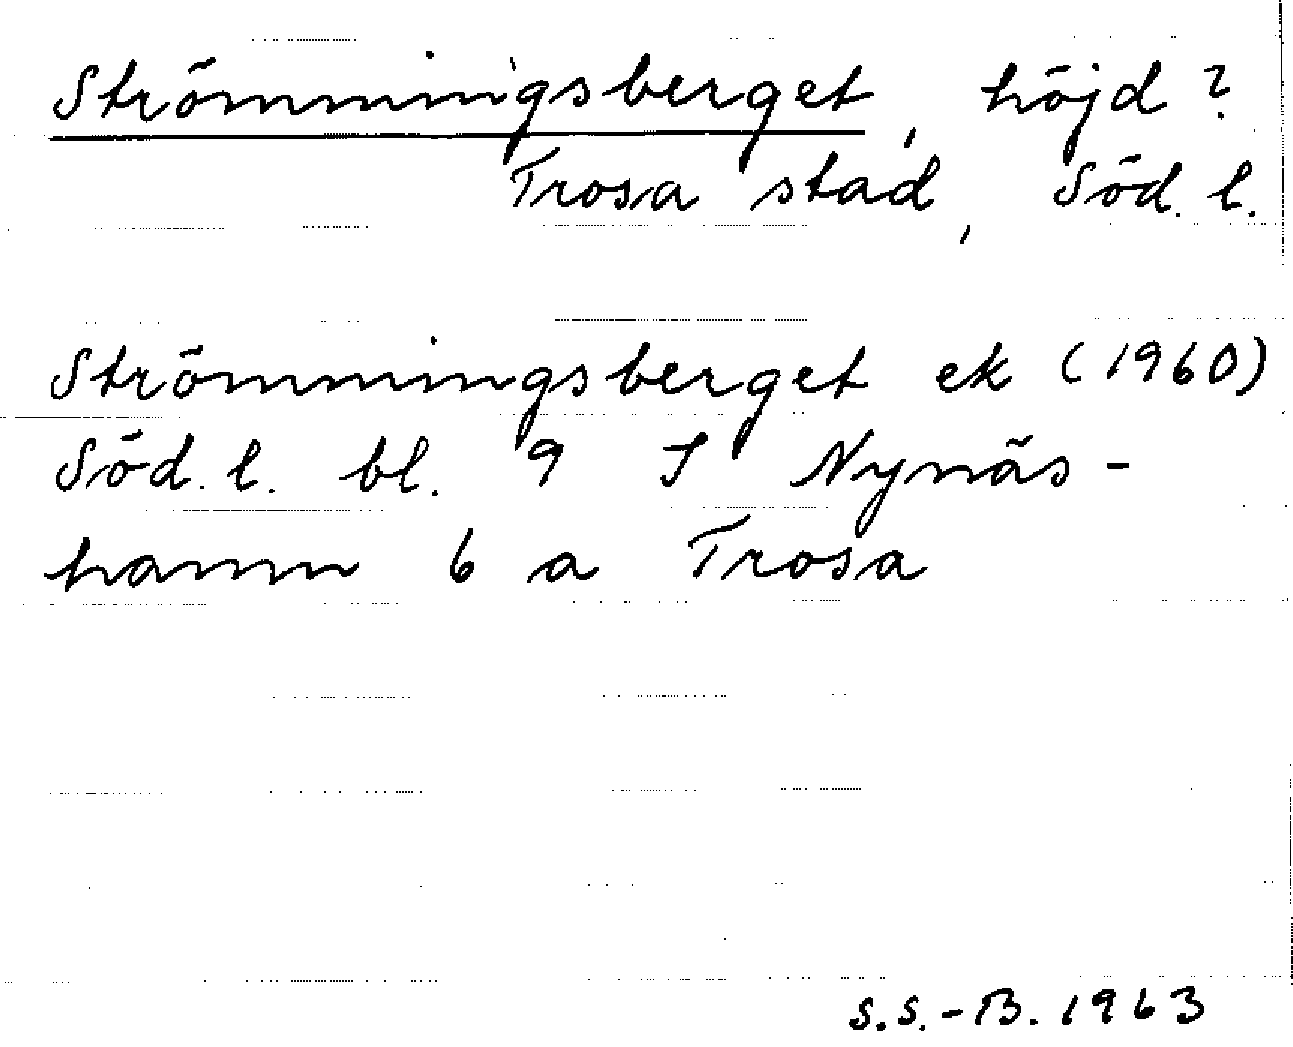 Strömmingsberget, höjd?
Trosa stad, Söd. l.
Strömmingsberget ek (1960)
Söd. l. bl. 9 I Nynäs-
hamn 6 a Trosa
S.S.-B. 1963